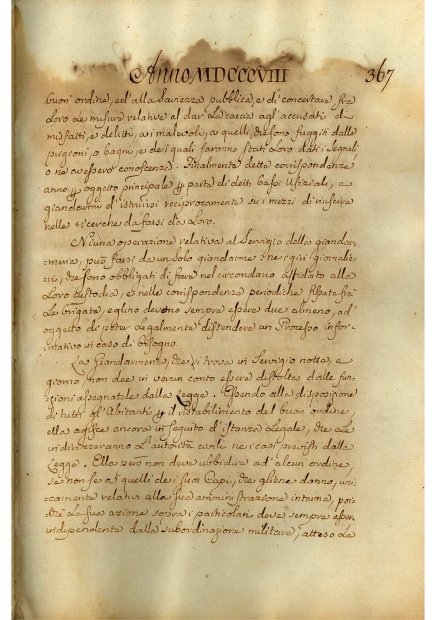 Anno MDCCCVIII 367
buon' ordine, ed' alla Saviezza pubblica, e di concertare fra
Loro le misure relative al dar la caccia agl' accusati di
misfatti, e delitti, a i malevoli, a quelli, che sono fuggiti dalle
prigioni, o bagni, e dei quali saranno stati Loro dati i Segnali
o ne avessero conoscenza. Finalmente dette corrispondenze
anno p oggetto principale p parte di detti bassi Ufiziali, e
giandarmi d' istruirsi reciprocamente su i mezzi di riuscire
nelle ricerche da farsi da Loro.
Niuna operazione relativa al Servizio della giandar,
meria, può farsi da un Solo giandarme. Ne i giri giornalie,
ri, che sono obbligati di fare nel circondario affidato alla
Loro custodia, e nelle corrispondenze periodiche fissate fra
Le brigate, eglino devono sempre essere due almeno, ad
oggetto di poter legalmente distendere un Processo infor,
mativo in caso di bisogno.
La Giandarmeria, che si trova in Servizio notte, e
giorno, non dee in verun conto essere distolta dalle fun,
zioni assegnatele dalla Legge. Essendo alla disposizione
di tutti gl' Abitanti p il ristabilimento del buon ordine
ella agisce ancora in seguito d' istanza Legale, che Le
indirizzeranno L' autorità civili ne i casi previsti dalla
Legge. Ella però non deve ubbidire ad' alcun ordine,
se non se a quelli de i suoi Capi, che gliene danno, uni,
camente relativi alla sua amministrazione interna, poi,
chè La sua azione sopra i particolari deve sempre esser
indipendente dalla subordinazione militare, atteso La